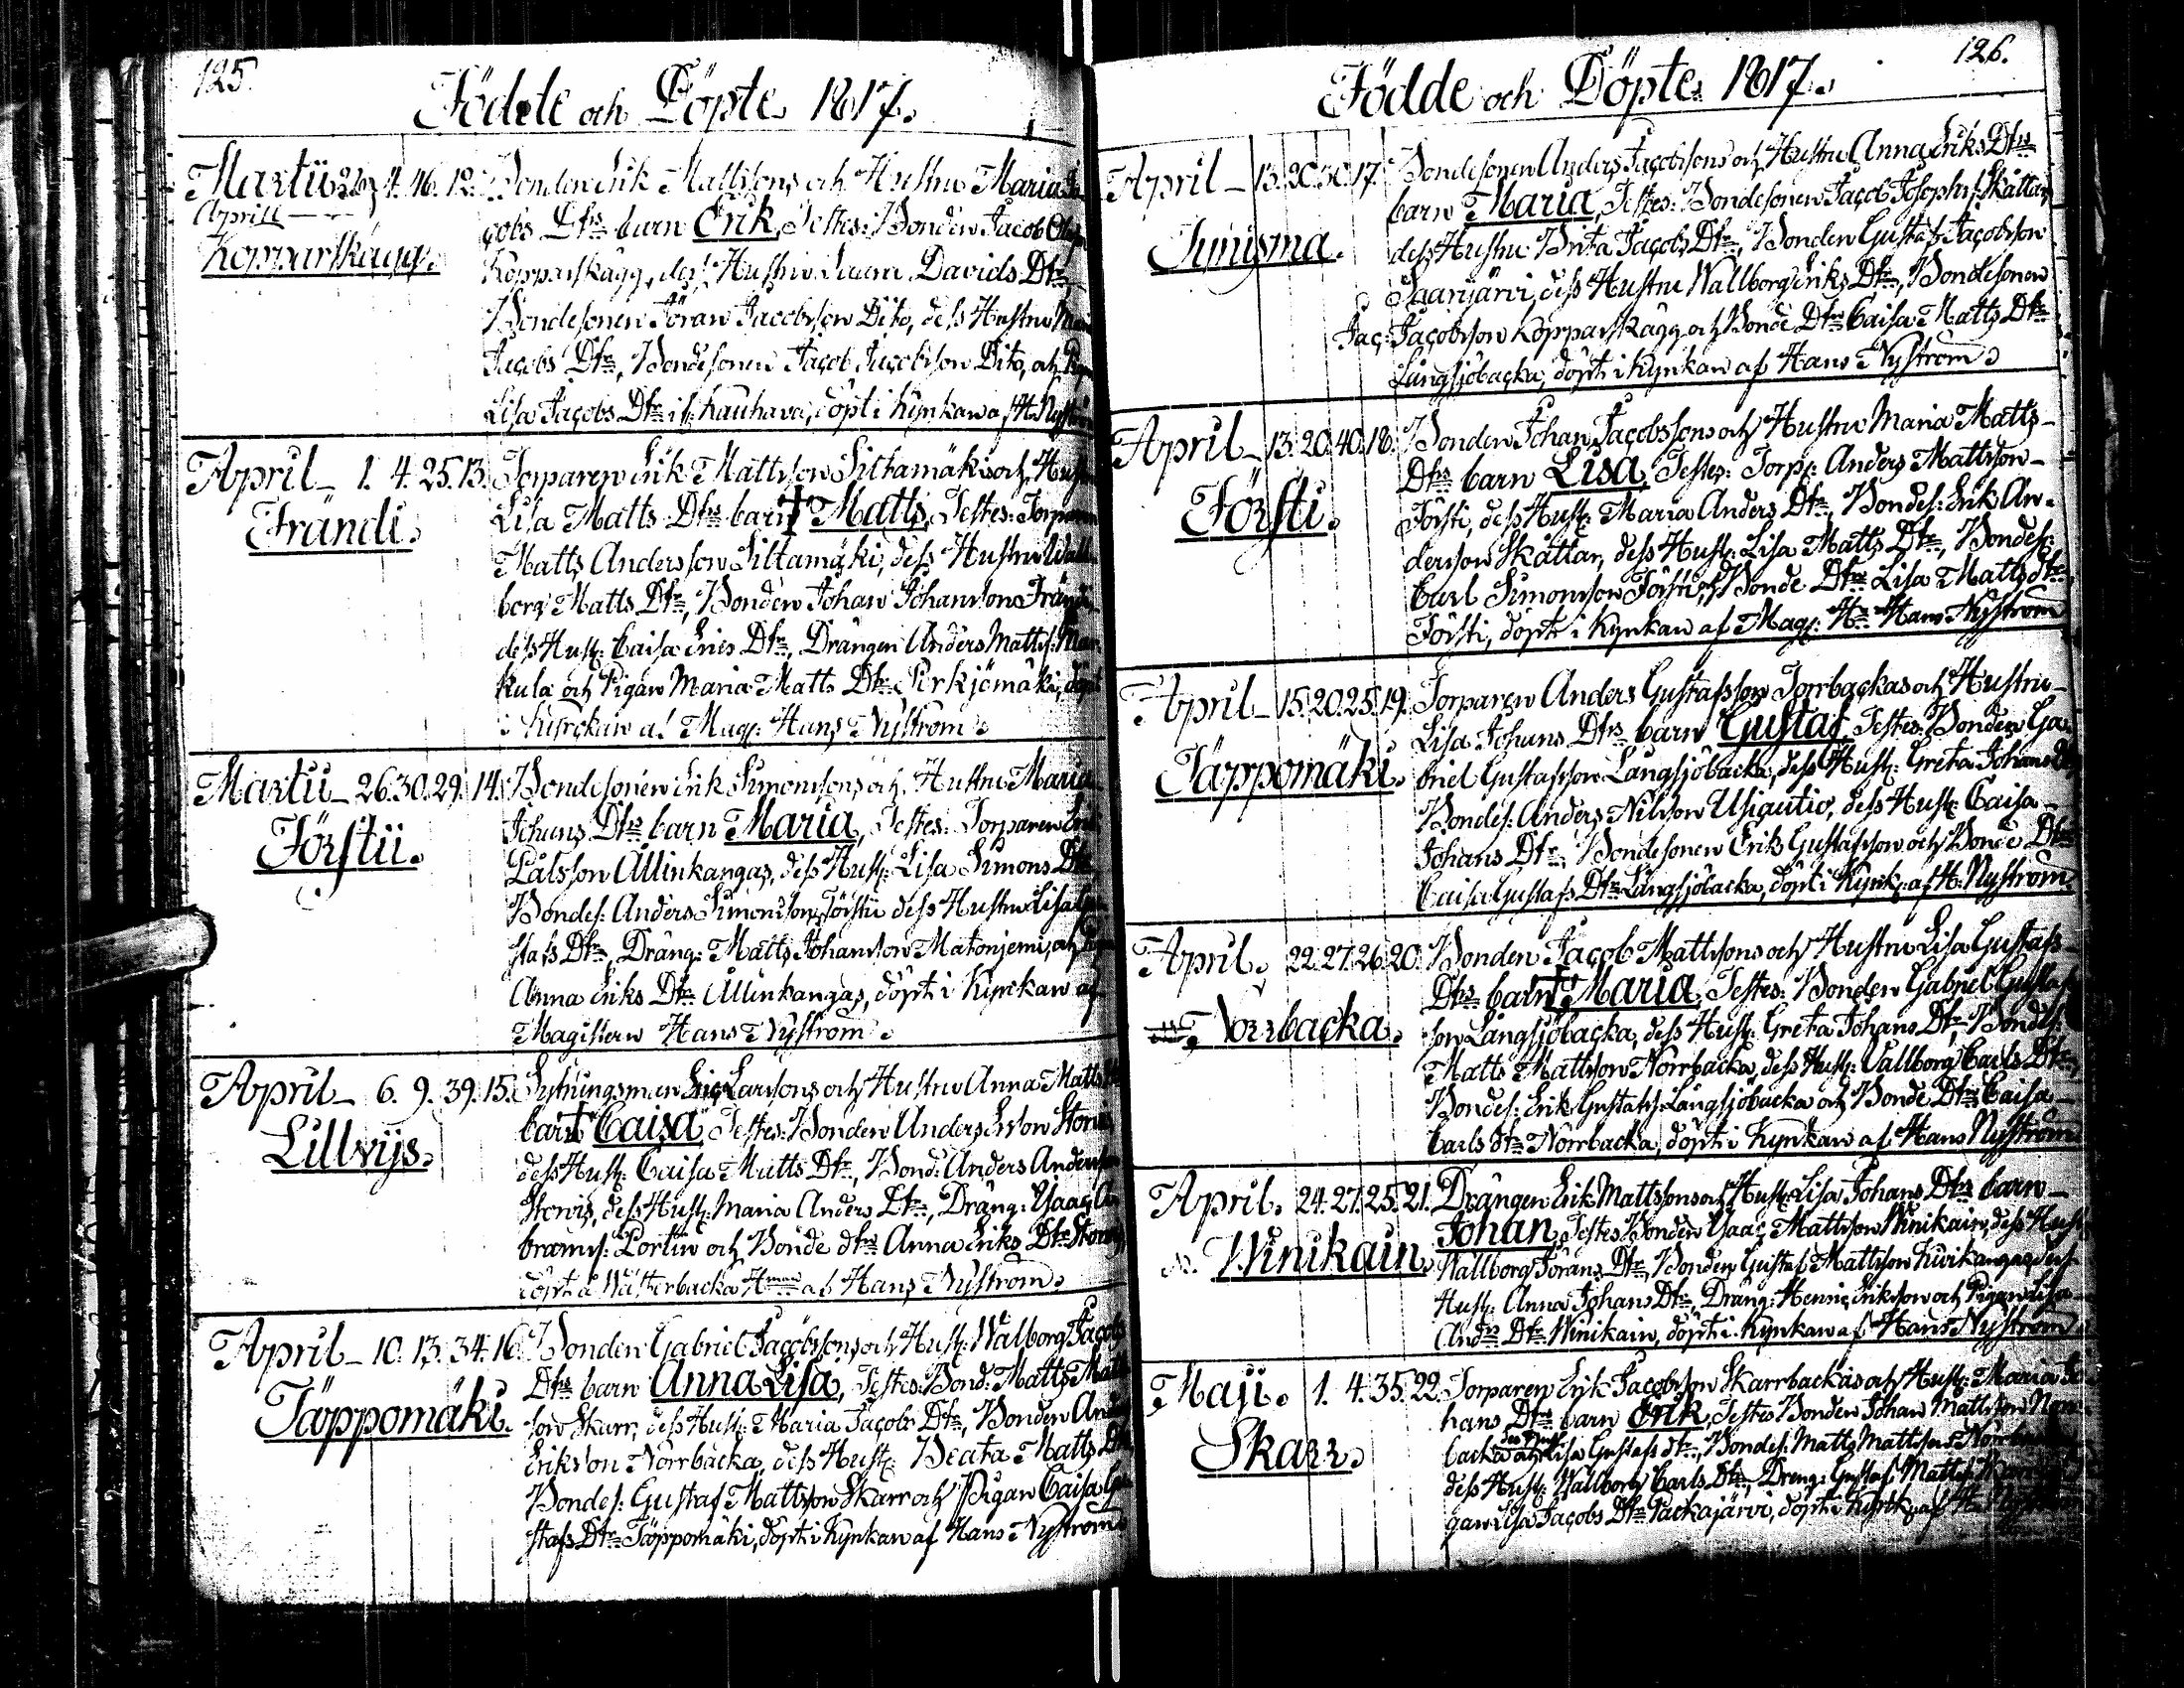 125.
Födde och Döpte 1817.
Martii 4. 46. 12. Bonden Erik Mattssons och Hustru Maria Ja
Aprill
cobs Dtrs barn Erik, Testes: Bonden Jacob
Kopparskägg.
Kopparskägg, dess Hustru Davids Dtr,
Bondesonen Jöran Jacobsson Dito, dess Hustru
Jacobs Dtr, Bondesonen Jacob Jacobsson Dito, och
Lisa Jacobs Dtr Kauhava, döpt i Kyrkan af H. Nyström
April 1. 4. 25. 13. Torparen Erik Mattsson Siltamäkis och Hustru
Frändi.
Lisa Matts Dtrs barn † Matts, Testes: Torparen
Matts Andersson Siltamäki, dess Hustru Wall
borg Matts Dtr, Bonden Johan Johansson Frändi
dess Hust: Caisa Erics Dtr, Drängen Anders Matts: Mar
kula och Pigan Maria Matts Dtr Pirkjömäki, döpt
i Kyrckan af Mag: Hans Nyström.
Martii 26. 30. 29. 14. Bondesonen Erik Simonssons och Hustru Maria
Försti.
Johans Dtrs barn Maria, Testes: Torparen
Pålsson Allinkangas, dess Hust: Lisa Simons Dtr
Bondes: Anders Simonsson Försti dess Hustru Lisa Gu
stafs Dtr, Dräng: Matts Johansson Matonjemi, och
Anna Eriks Dtr Allinkangas, döpt i Kyrckan af
Magistern Hans Nyström.
April 6. 9. 39. 15. Sytningsman Eric Larssons och Hustru Anna Matts
Lillvijs.
barn † Caisa, Testes: Bonden Anders Ersson
dess Hust: Caisa Matts Dtr, Bond: Anders Andersson
Storvis, dess Hust: Maria Anders Dtr, Dräng: Ysaac A
brams: Portin och Bonde dtr Anna Eriks Dtr
döpt å Wästerbacka af Hans Nyström.
April 10. 13. 34. 16. Bonden Gabriel Jacobssons och Hust: Walborg Jacobs
Täppomäki.
Dtrs barn Anna Lisa, Testes: Bond: Matts Matts
son Skarr, dess Hust: Maria Jacobs Dtr, Bonden Anders
Eriksson Norrbacka, dess Hust: Beata Matts Dtr
Bondes: Gustaf Mattsson Skarr och Pigan Caisa Gu
stafs Dtr Täppomäki, döpt i Kyrkan af Hans Nyström
126.
Födde och Döpte 1817.
April 13. 20. 30. 17. Bondesonen Anders Jacobssons och Hustru Anna Eriks Dtrs
barn Maria, Testes: Bondesonen Jacob Josephs: Skattar,
Tynisma.
dess Hustru Brita Jacobs Dtr, Bonden Gustaf Jacobsson
Saarijärvi, dess Hustru Wallborg Eriks Dtr, Bondesonen
Jac: Jacobsson Kopparskägg och Bonde Dtr Caisa Matts Dtr
Långsjöbacka, döpt i Kyrkan af Hans Nyström.
April 13. 20. 40. 18. Bonden Johan Jacobssons och Hustru Maria Matts
Försti.
Dtrs barn Lisa, Testes: Torp: Anders Mattsson
Försti, dess Hust: Maria Anders Dtr, Bondes: Erik An
dersson Skattar, dess Hust: Lisa Matts Dtr, Bondes:
Carl Simonsson Försti, och Bonde Dtr Lisa Matts dtr
Försti, döpt i Kyrkan af Mag: Hr Hans Nyström
April 15. 20. 25. 19. Torparen Anders Gustafsson Torrbackas och Hustru
Täppomäki.
Lisa Johans Dtrs barn Gustaf, Testes: Bonden Ga
briel Gustafsson Långsjöbacka, dess Hust: Greta Johans Dtr
Bondes: Anders Nilsson Usiautio, dess Hust: Caisa
Johans Dtr, Bondesonen Erik Gustafsson och Bonde Dtr
Caisa Gustafs Dtr Långsjöbacka, döpt i Kyrk: af H: Nyström.
April. 22. 27. 26. 20. Bonden Jacob Mattssons och Hustru Lisa Gustafs
Norrbacka.
Dtrs barn † Maria, Testes: Bonden Gabriel Gustaf
son Långsjöbacka, dess Hust: Greta Johans Dtr, Bondes:
Matts Mattsson Norrbacka, dess Hust: Vallborg Carls Dtr,
Bondes: Erik Gustafs: Långsjöbacka och Bonde Dtr Caisa
Carls dtr Norrbacka, döpt i Kyrkan af Hans Nyström
April. 24. 27. 25. 21. Drängen Erik Mattssons och Hust: Lisa Johans Dtrs barn
Winikain.
Johan, Testes Bonden Ysaac Mattsson Winikain, dess Hust:
Wallborg Jörans Dtr, Bonden Gustaf Mattsson Kivikangas, dess
Hust: Anna Johans Dtr, Dräng: Henric Eriksson och Pigan Lisa
Andrs Dtr Winikain, döpt i Kyrkan af Hans Nyström
Maji. 1. 4. 35. 22. Torparen Erik Jacobsson Skarrbackas och Hust: Maria Jo
hans Dtrs barn Erik, Testes Bonden Johan Mattsson Norr
Skarr.
backa dess Hust Lisa Gustafs dtr, Bondes: Matts Mattsons Norrbacka
dess Hust: Wallborg Carls Dtr, Dreng: Gustaf Matts:
gan Lisa Jacobs Dtr Packajärvi, döpt i Kyrk: af H: Nyström